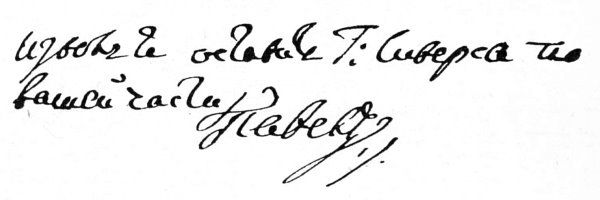 извольте оставить Г: Сиверса по
вашей части
Павел